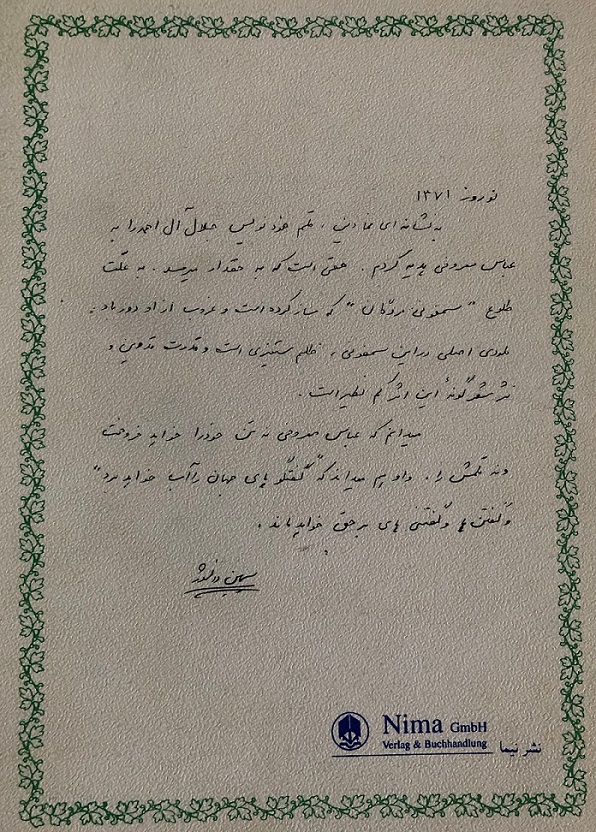 نوروز ۱۳۷۱
به نشانه‌ای نمادین، قلم خودنویس جلال آل احمد را به
عباس معروفی هدیه کردم. حقی است که به حقدار میرسد. به علّت
طلوع "سمفونی مردگان" که ساز کرده است و غروب از او دور باد.
ملودی اصلی در این سمفونی، ظلم ستیزی است و قدرت تدوین و
نثر شعرگونهٔ این اثر کم نظیر است.
میدانم که عباس معروفی نه تن خود را خواهد فروخت
و نه قلمش را. و او هم میداند که "گفتگوهای جهان را آب خواهد برد"
و گفتن‌ها و گفتنی‌های بر حق خواهد ماند.
سیمین دانشور
Nima GmbH
Verlag & Buchhandlung نشر نیما